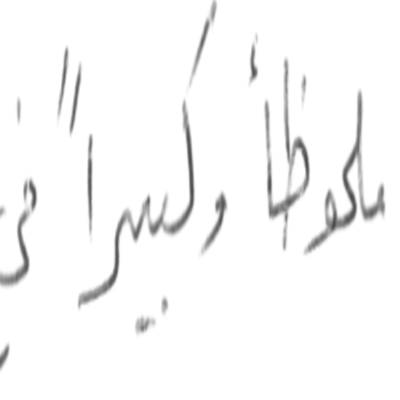 ملحوظاً وكبيراً في